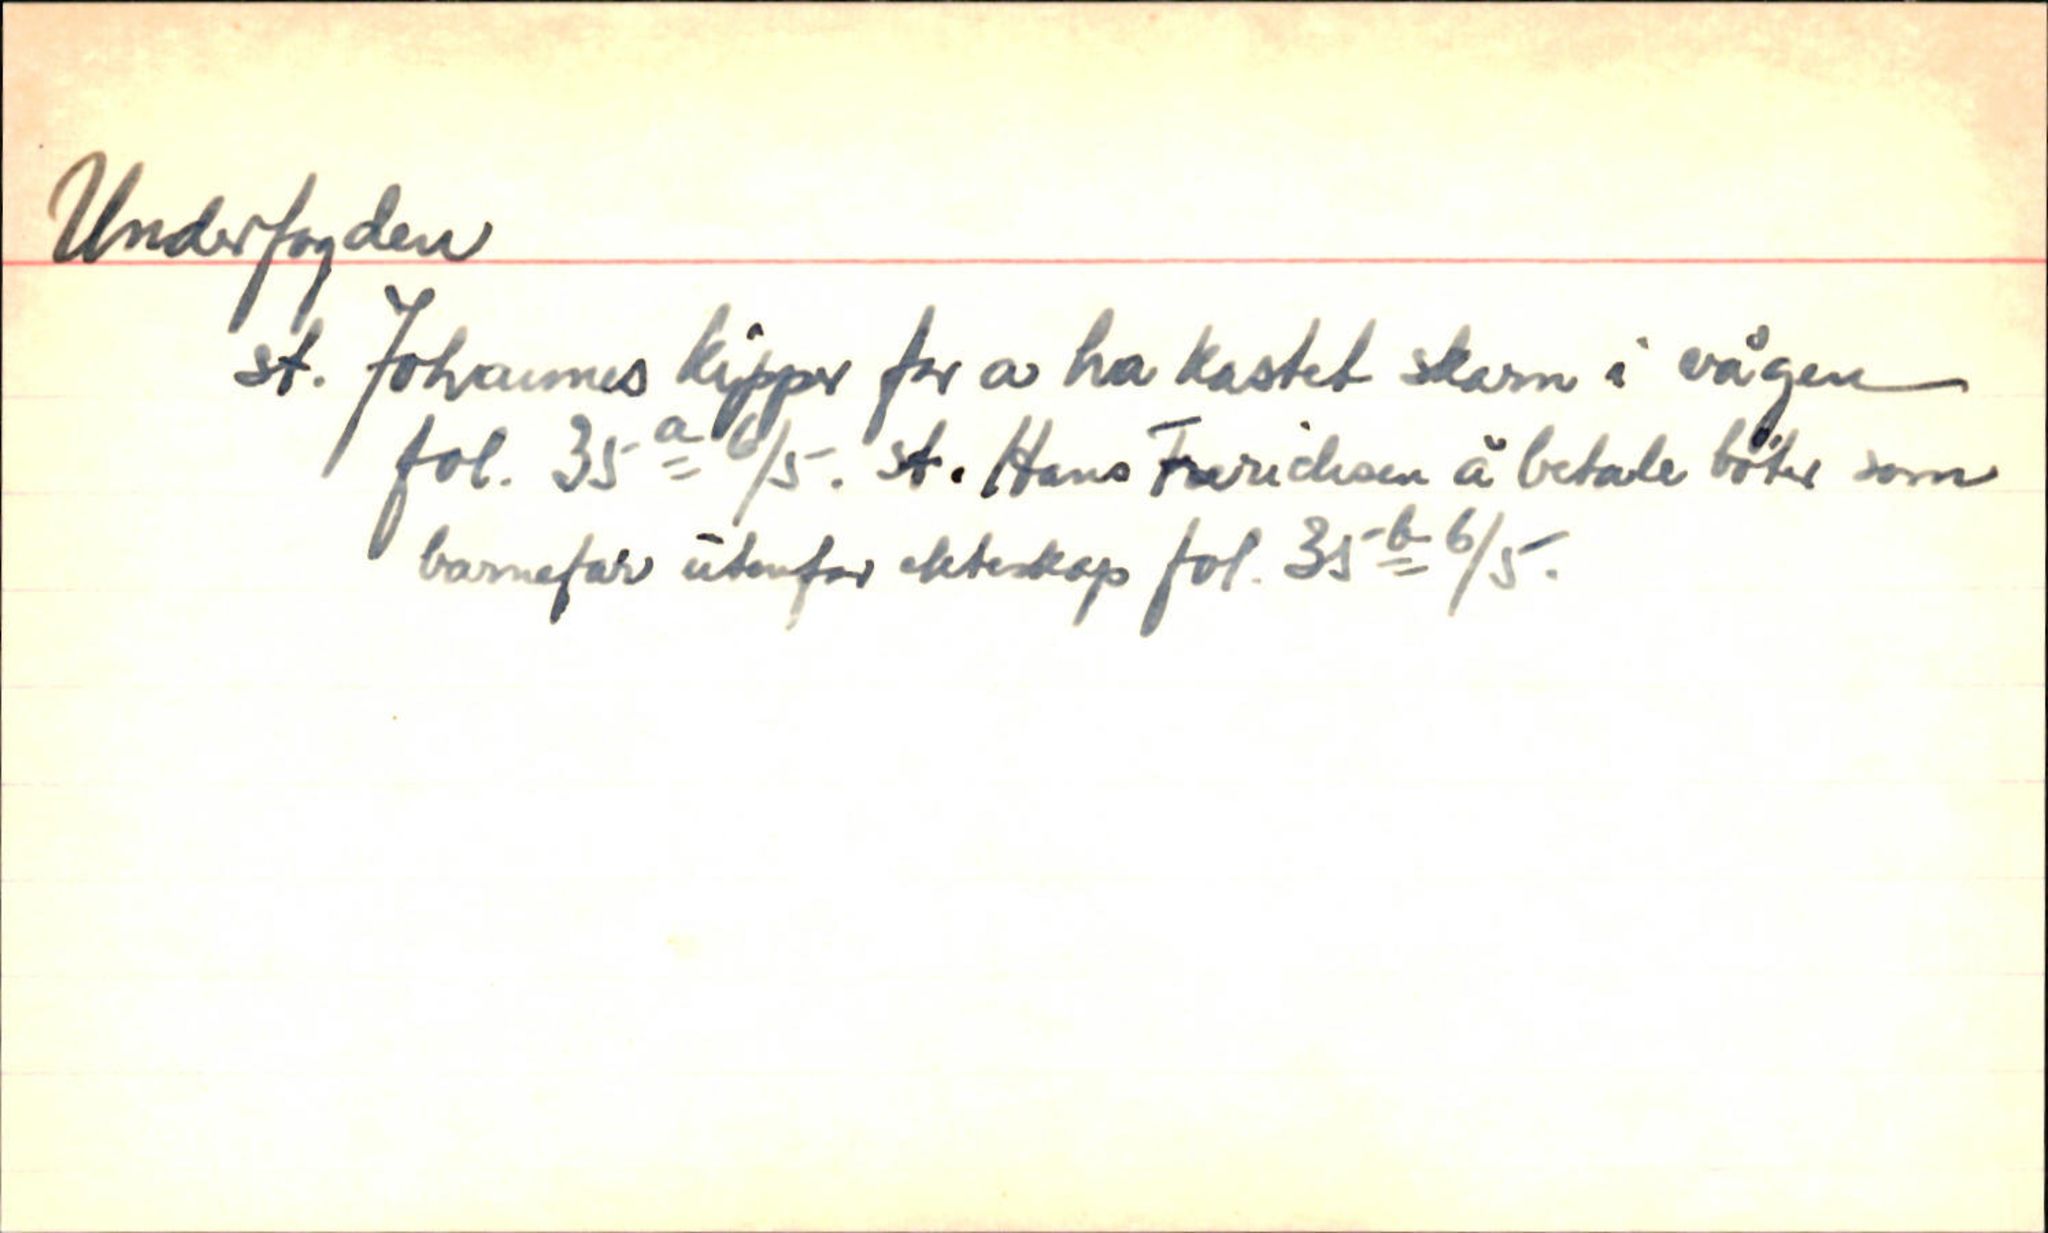 Underfogden
st. Johannes Kipper for a ha kastet skarn i vågen
fol. 35 a 6/5. st. Hans Frerichsen å betale böter som
barnefar ütenfor ekteskap fol. 35 b 6/5.